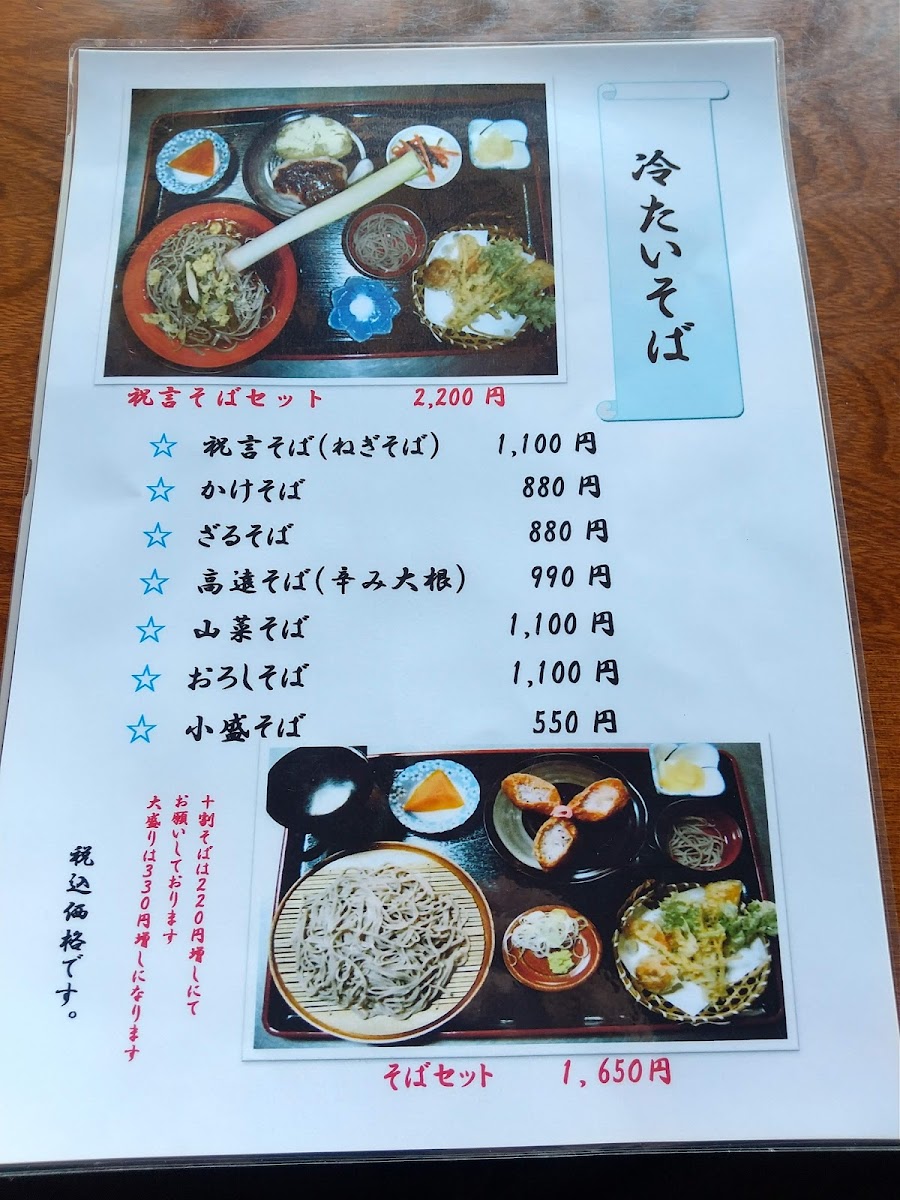 冷たいそば
祝言そばセット 2,200 円
☆ 祝言そば(ねぎそば) 1,100 円
☆ かけそば 880 円
☆ ざるそば 880 円
☆ 高遠そば(辛み大根) 990 円
☆ 山菜そば 1,100 円
☆ おろしそば 1,100 円
☆ 小盛そば 550 円
十割そばは220円増しにて
お願いしております
大盛りは330円増しになります
税込価格です。
そばセット 1,650円